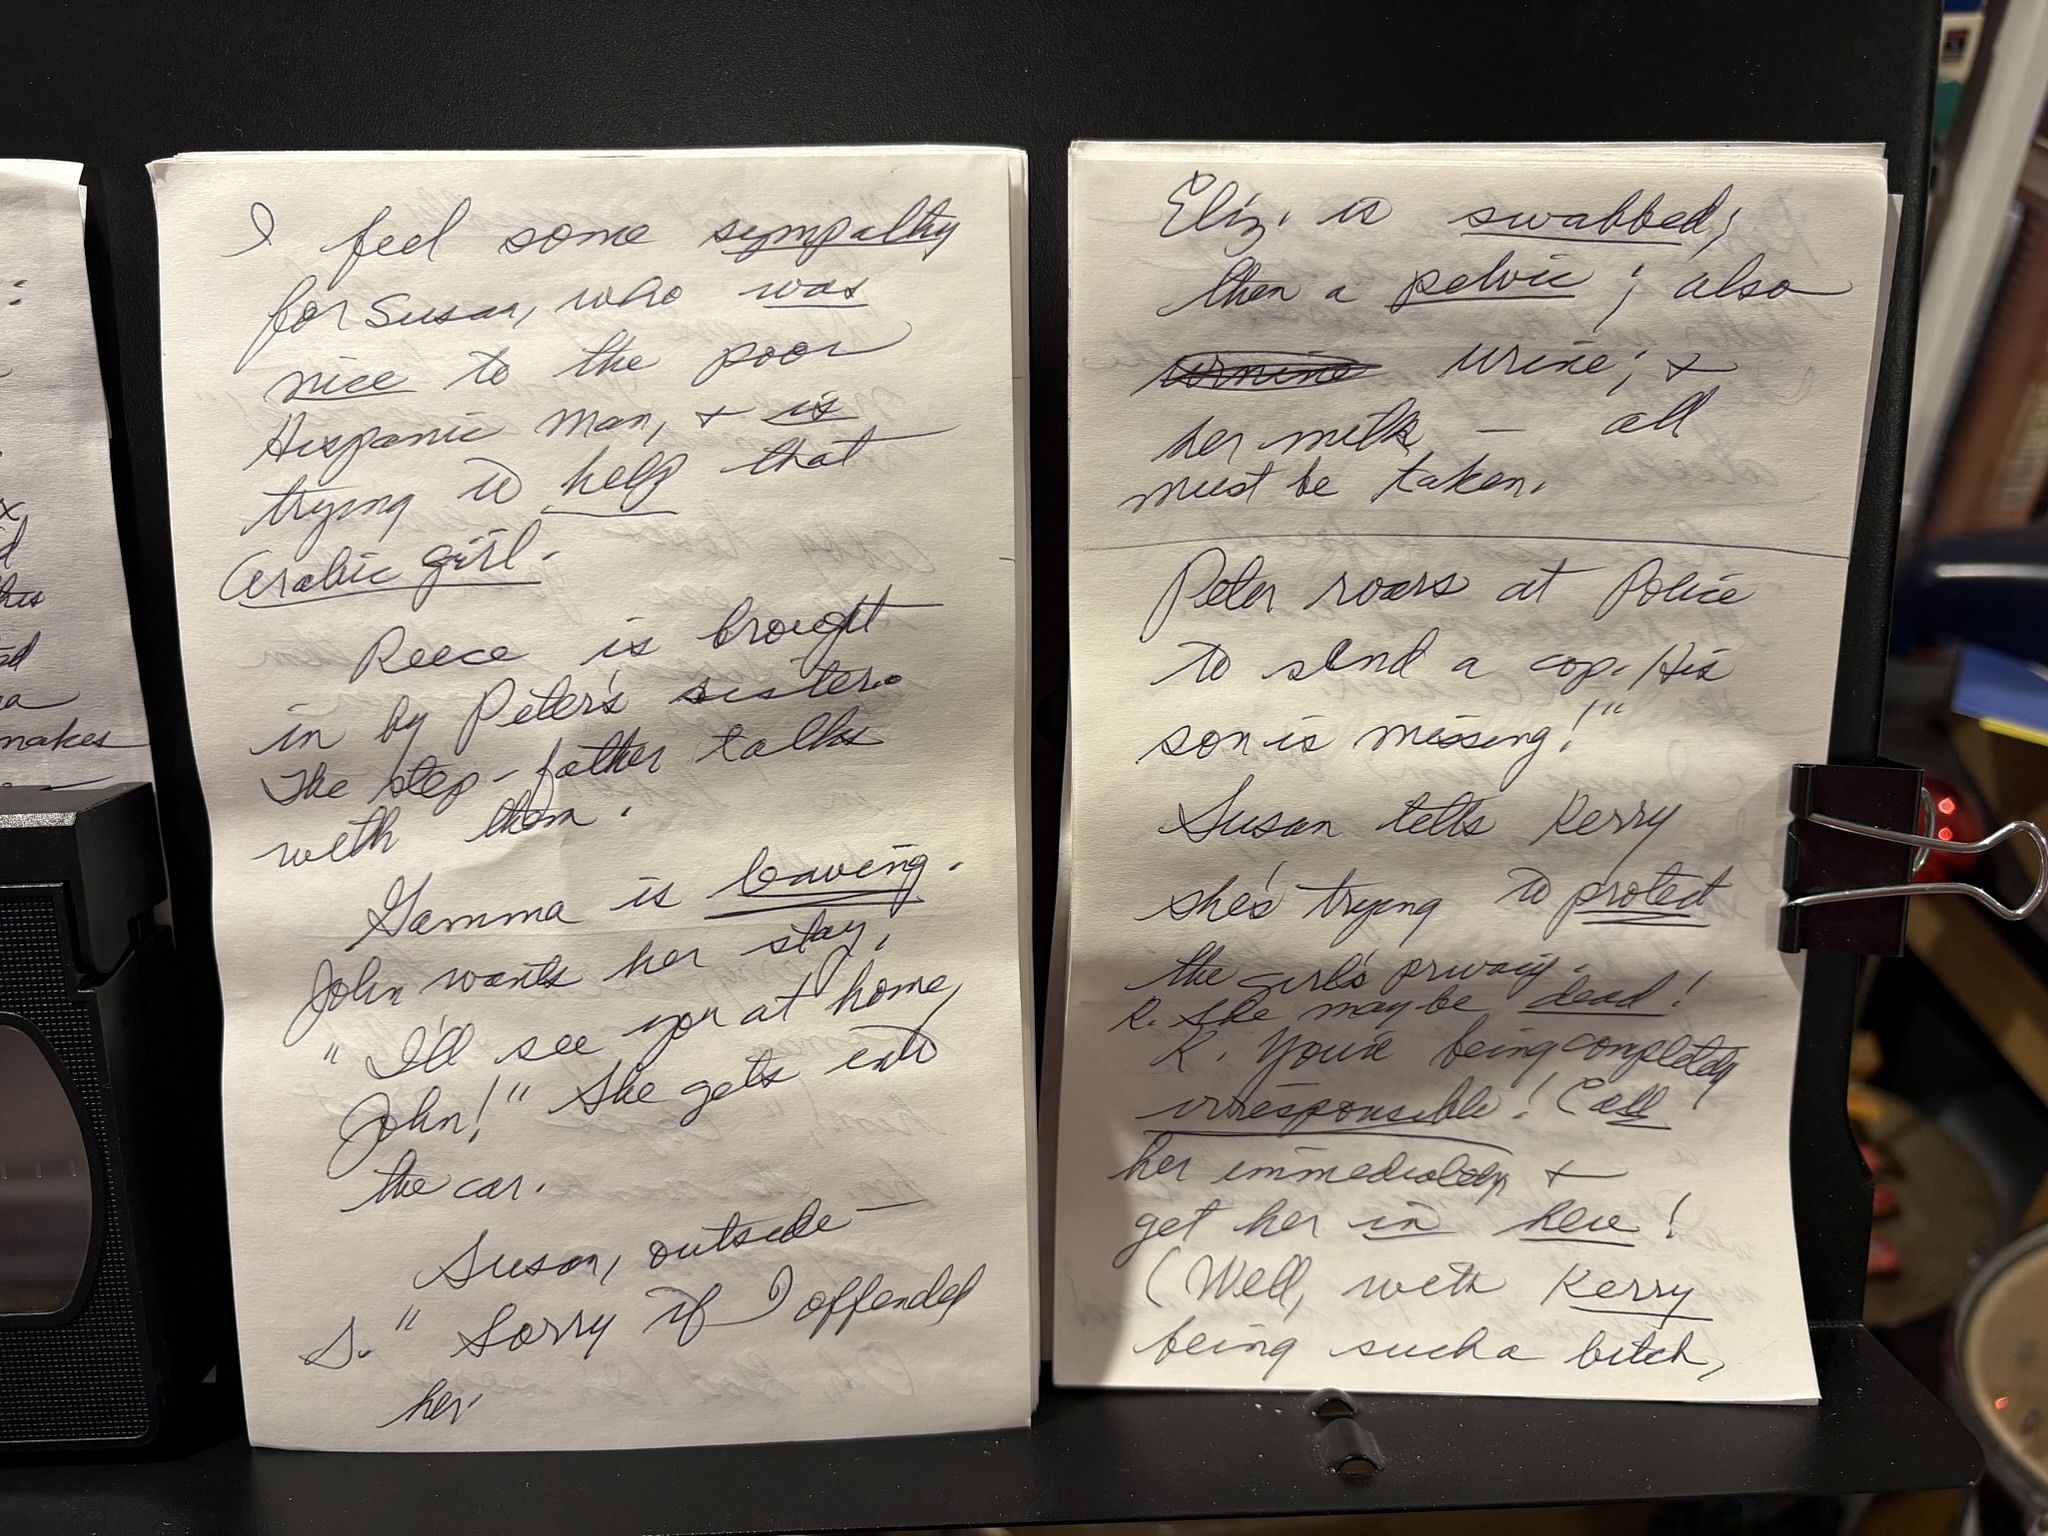 :
x
d
his
nd
na
makes
I feel some sympathy
for Susan, who was
nice to the poor
Hispanic man, + is
trying to help that
Arabic girl.
Reece is brought
in by Peter's sister.
The step-father talks
with them.
Gamma is leaving.
John wants her stay.
" I'll see you at home,
John!" She gets into
the car.
Susan, outside —
S. " Sorry if I offended
her.
Eliz. is swabbed;
then a pelvic ; also
urine; +
her milk — all
must be taken.
Peter roars at Police
to send a cop. His
son is missing!"
Susan tells Kerry
she's trying to protect
the girl's privacy.
K. She may be dead!
K. You're being completely
irresponsible! Call
her immediately +
get her in here!
(Well, with Kerry
being such a bitch,